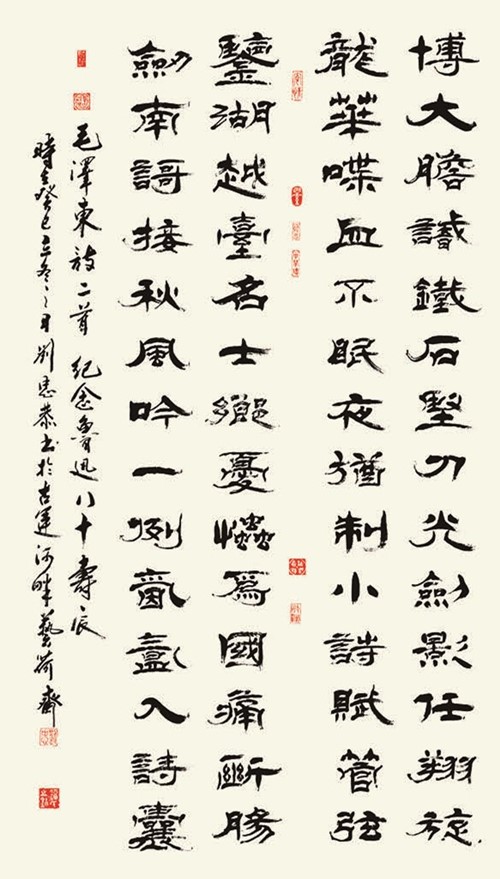 博大膽識鐵石堅刀光劍影任翔旋
龍華喋血不眠夜猶制小詩賦管弦
鑒湖越臺名士鄉憂爲國痛斷腸
劍南謌接秋風吟一例入詩囊
毛澤東詩二首 紀念魯迅八十壽辰
時在癸巳立冬之日劉恭書於古運河畔藝荷齋